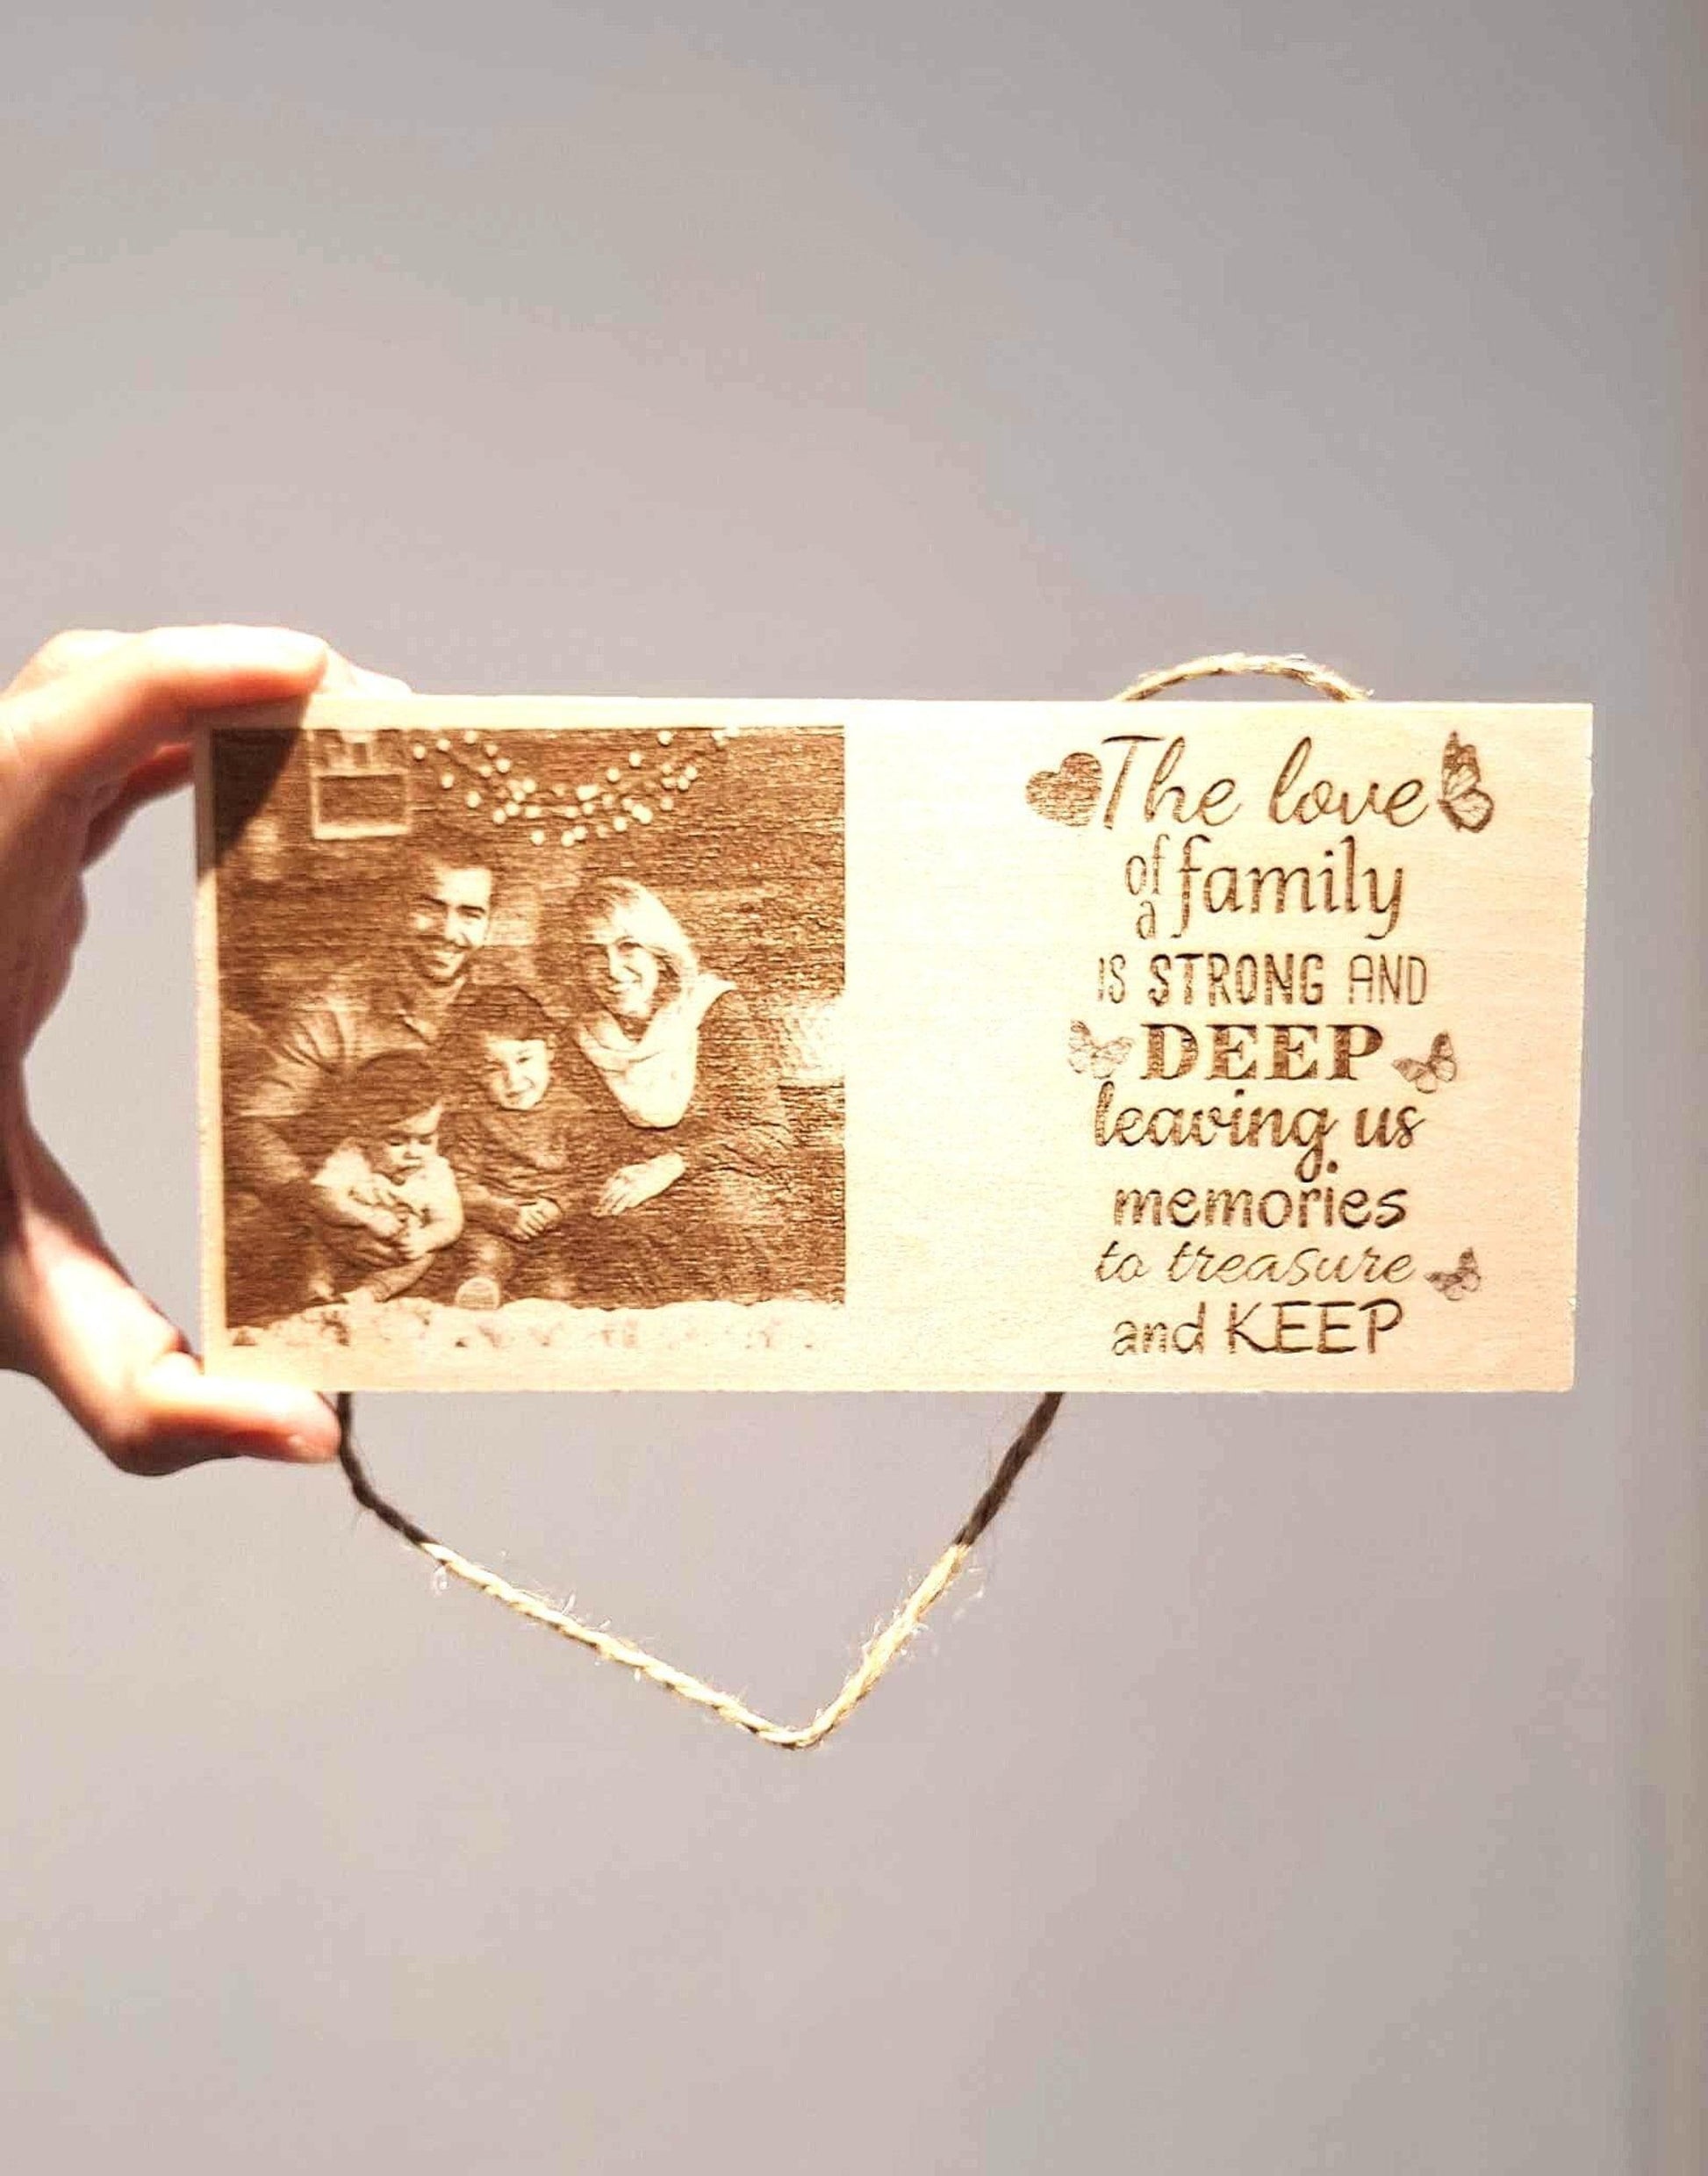 The love
of a family
IS STRONG AND
DEEP
leaving us
memories
to treasure
and KEEP